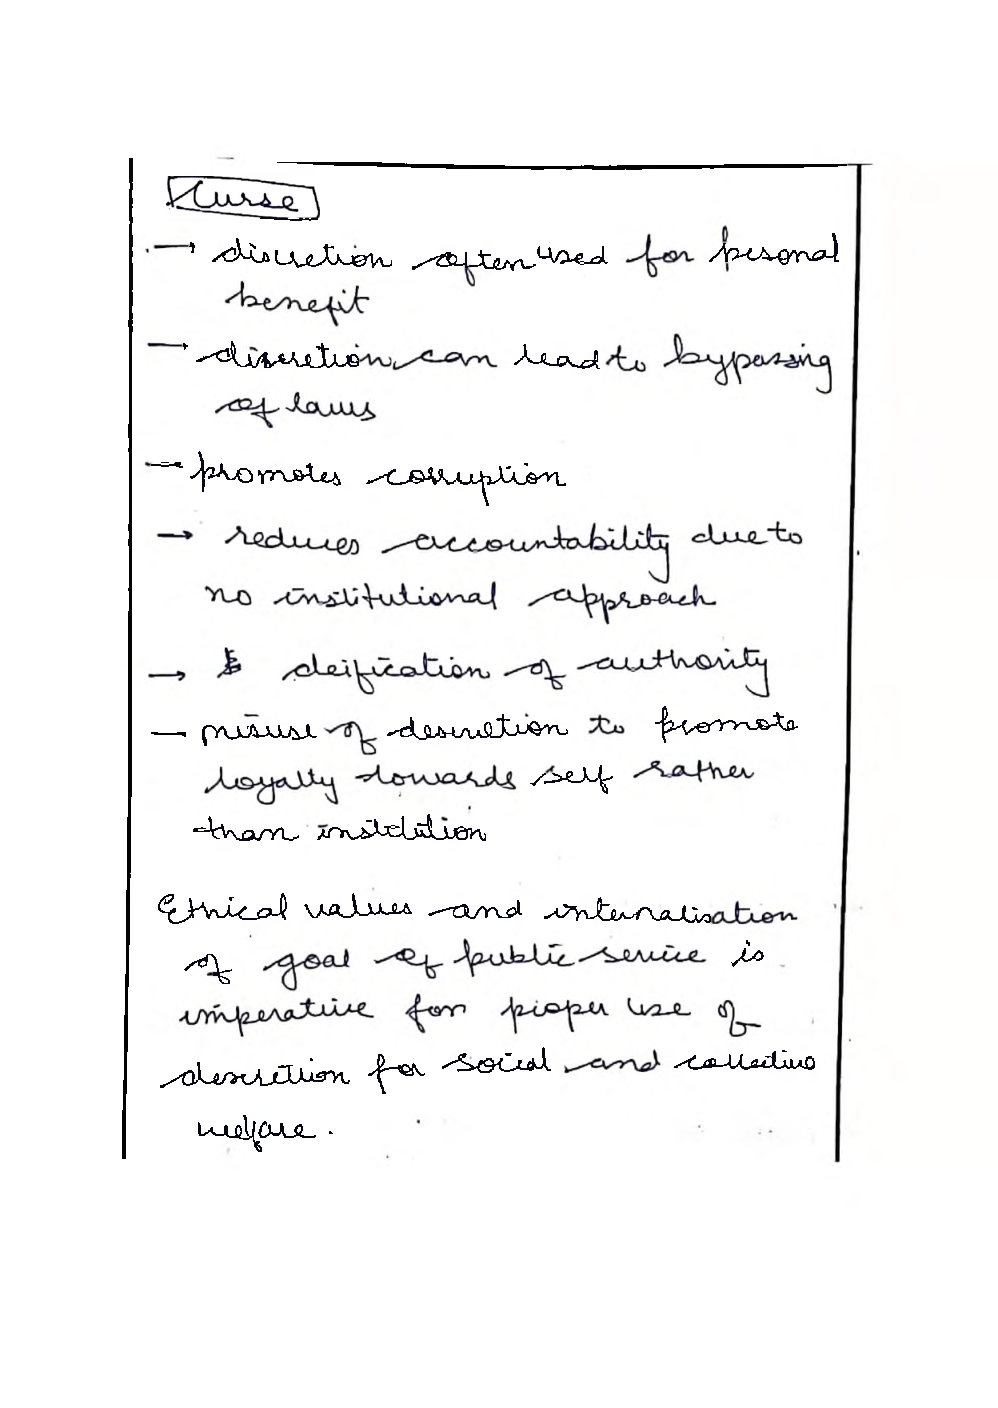 Curse
→ discretion often used for pesonal
benefit
→ discretion can lead to bypassing
of laws
→ promotes corruption
→ reduces accountability due to
no institutional approach
→ deification of authority
→ misuse of descretion to promote
loyalty towards self rather
than institution
Ethical values and internalisation
of goal of public service is
imperative for proper use of
descretion for social and collective
welfare.